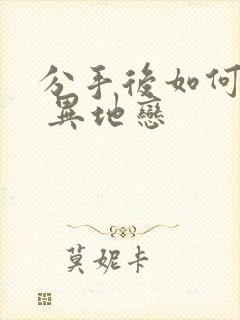 分手後如何
異地戀
莫妮卡